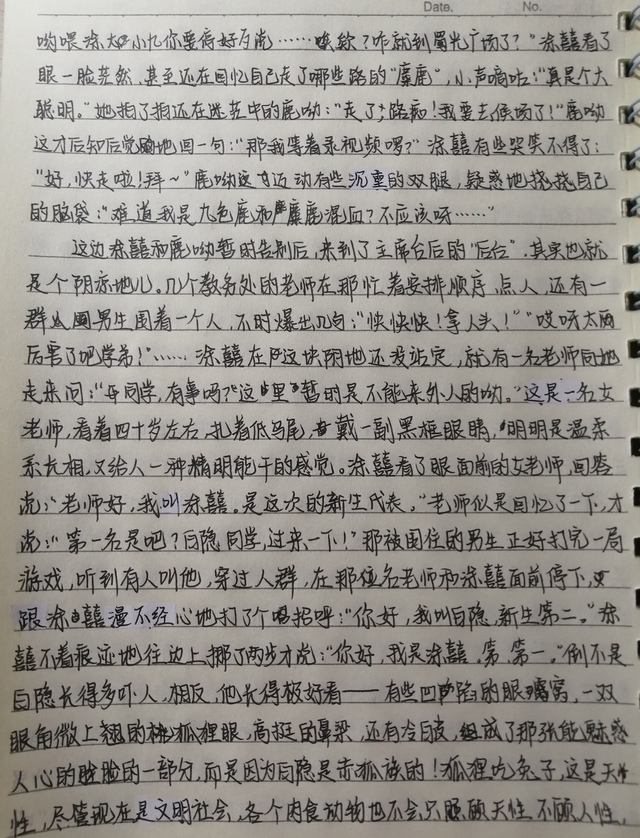 Date. No.
哟喂涂大知小九你要有好歹虎……唉欸？咋就到蜀光广场了？”涂囍看了
眼一脸茫然，甚至还在回忆自己走了哪些路的“麋鹿”，小声嘀咕：“真是个大
聪明。”她拍了拍还在迷茫中的鹿呦：“走了，路痴！我要去候场了！”鹿呦
这才后知后觉地回一句：“那我等着录视频啰？”涂囍有些哭笑不得了：
“好，快走啦！拜～”鹿呦这才迈动有些沉重的双腿，疑惑地挠挠自己
的脑袋：“难道我是九色鹿和麋鹿混血？不应该呀……”
这边涂囍和鹿呦暂时告别后，来到了主席台后的“后台”，其实也就
是个阴凉地儿。几个教务处的老师在那忙着安排顺序，点人，还有一
群男生围着一个人，不时爆出几句：“快快快！拿人头！”“哎呀太
厉害了吧学弟！”……涂囍在这块阴地还没站定，就有一名老师向她
走来问：“同学，有事吗？这里暂时是不能来外人的呦。”这是一名女
老师，看着四十岁左右，扎着低马尾，戴一副黑框眼睛，明明是温柔
系长相，又给人一种精明能干的感觉。涂囍看了眼面前的女老师，回答
说：“老师好，我叫涂囍。是这次的新生代表。”老师似是回忆了一下，才
说：“第一名是吧？白隐同学，过来一下！”那被围住的男生正好打完一局
游戏，听到有人叫他，穿过人群，在那位名老师和涂囍面前停下，
跟涂囍漫不经心地打了个招呼：“你好，我叫白隐，新生第二。”涂
囍不着痕迹地往边上挪了两步才说：“你好，我是涂囍。第，第一。”倒不是
白隐长得多吓人，相反，他长得极好看——有些凹陷的眼窝，一双
眼角微上翘的狐狸眼，高挺的鼻梁，还有冷白皮，组成了那张能魅惑
人心的脸的一部分，而是因为白隐是赤狐族的！狐狸吃兔子，这是天
性，尽管现在是文明社会，各个肉食动物也不会只照顾天性不顾人性，